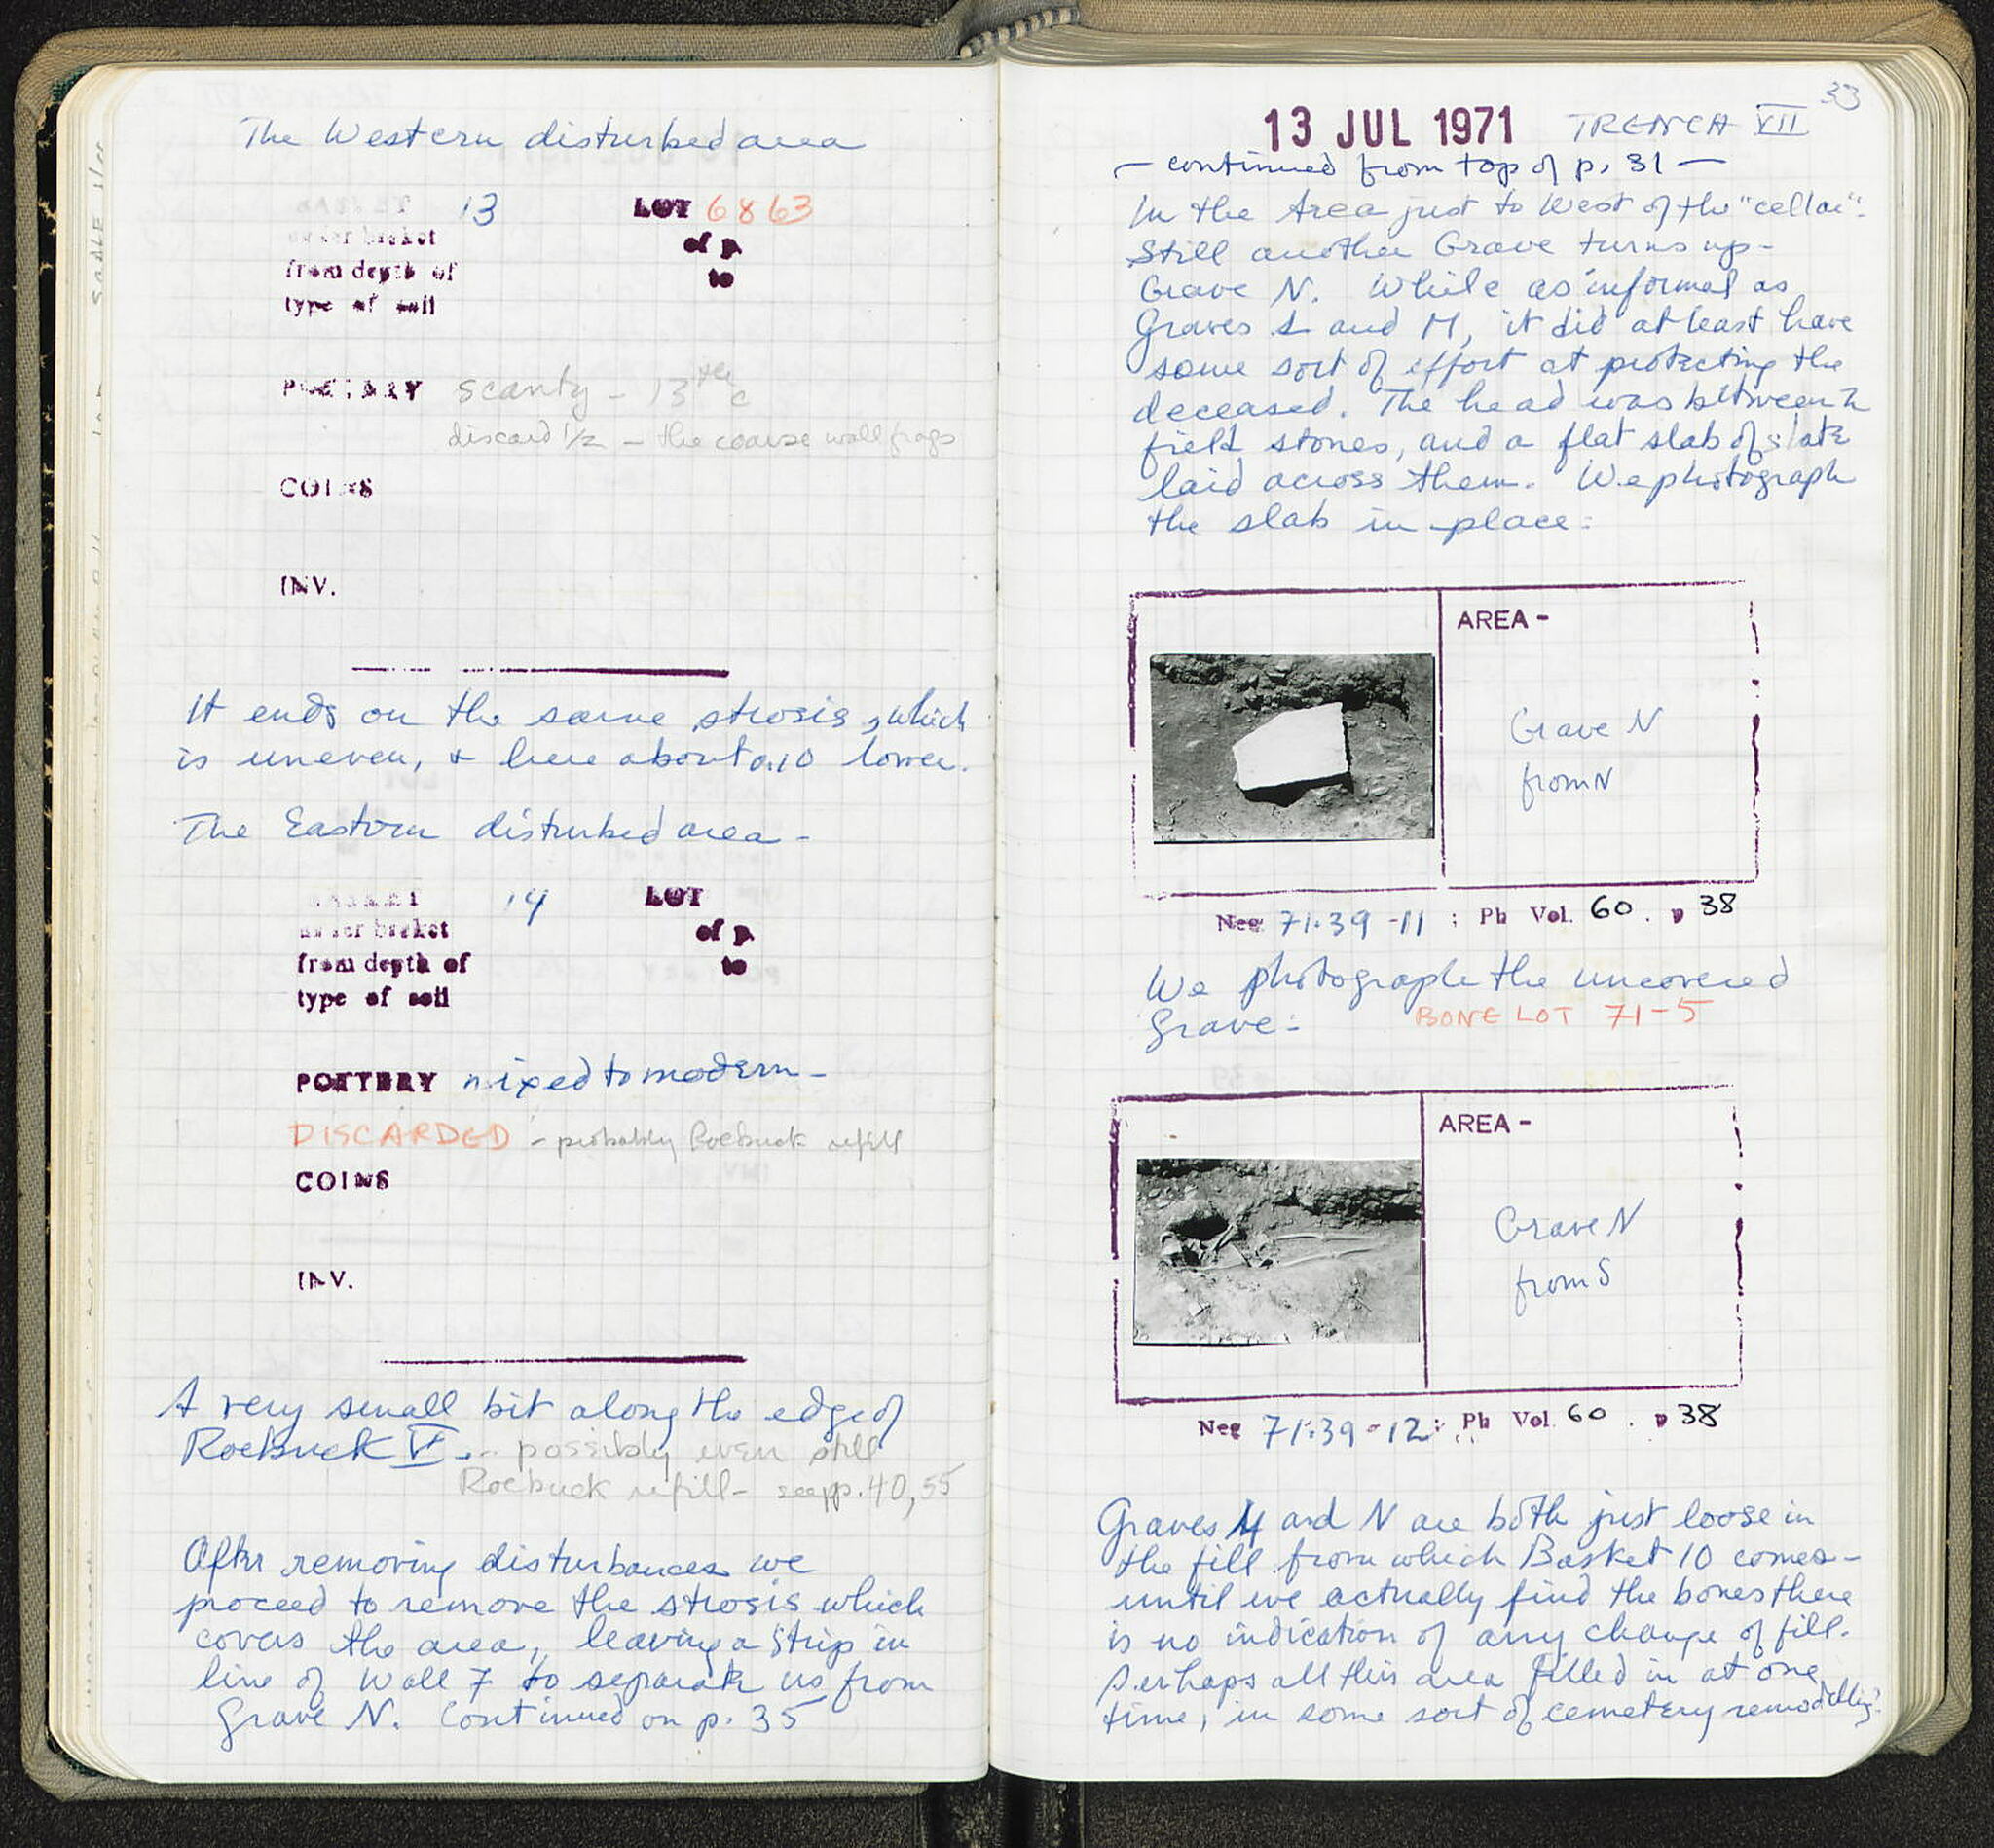 The Western disturbed area
13 LOT 6863
under basket of p.
from depth of to
type of soil
POTTERY scanty - 13th c
discard 1/2 - the coarse wall frags
COINS
INV.
It ends on the same strosis, which
is uneven, & here about 0.10 lower.
The Eastern disturbed area -
BASKET 14 LOT
under basket of p.
from depth of to
type of soil
POTTERY mixed to modern -
DISCARDED - probably Roebuck refill
COINS
INV.
A very small bit along the edge of
Roebuck V. - possibly even still
Roebuck refill - see pp. 40, 55
After removing disturbances we
proceed to remove the strosis which
covers the area, leaving a strip in
line of Wall 7 to separate us from
Grave N. Continued on p. 35
33
13 JUL 1971 TRENCH VII
- continued from top of p. 31 -
In the Area just to West of the "cellar".
Still another Grave turns up -
Grave N. While as informal as
Graves L and M, it did at least have
some sort of effort at protecting the
deceased. The head was between 2
field stones, and a flat slab of slate
laid across them. We photograph
the slab in place:
AREA -
Grave N
from N
Neg 71-39-11 ; Ph Vol. 60 . p 38
We photograph the uncovered
Grave: BONE LOT 71-5
AREA -
Grave N
from S
Neg 71-39-12 ; Ph Vol. 60 . p 38
Graves M and N are both just loose in
the fill from which Basket 10 comes -
until we actually find the bones there
is no indication of any change of fill.
Perhaps all this area filled in at one
time, in some sort of cemetery remodelling?